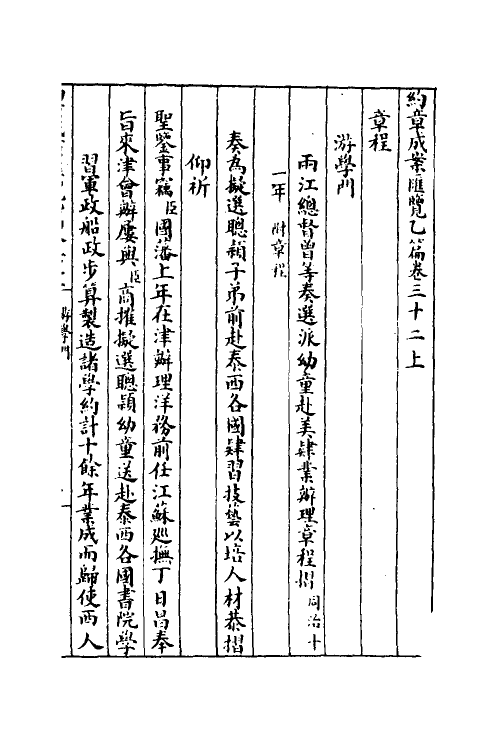 約章成案匯覽乙篇卷三十二上
章程
游學門
兩江總督曾等奏選派幼童赴美肄業辦理章程摺同治十
一年附章程
奏為擬選聰穎子弟前赴泰西各國肄習技藝以培人材恭摺
仰祈
聖鑒事竊臣國藩上年在津辦理洋務前任江蘇巡撫丁日昌奉
旨來津會辦屢與臣商搉擬選聰穎幼童送赴泰西各國書院學
習軍政船政步算製造諸學約計十餘年業成而歸使西人
游學門